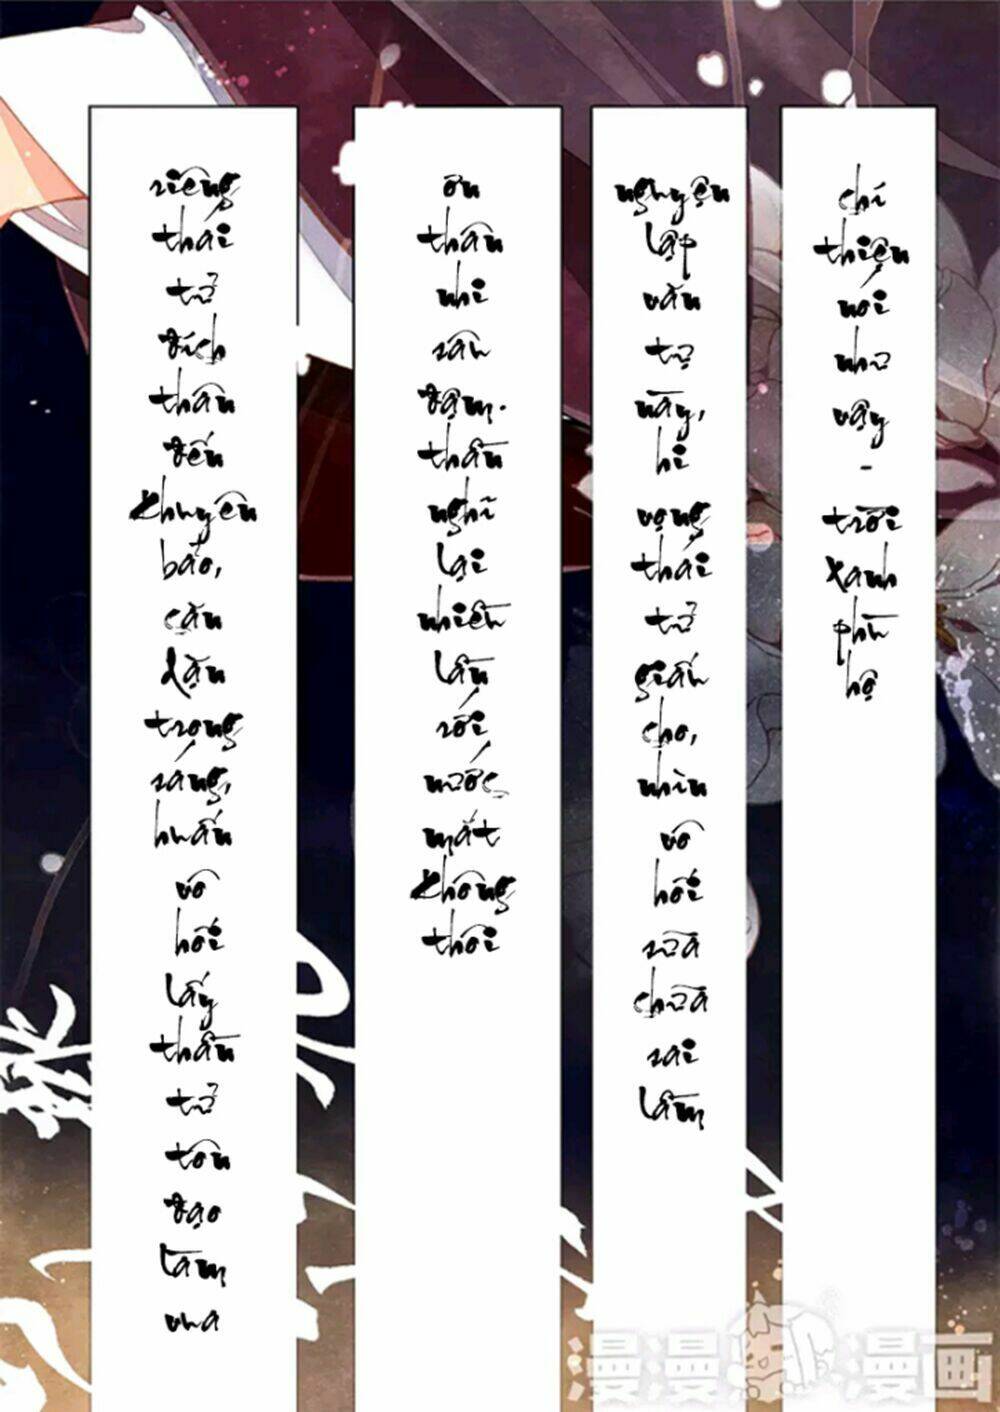 riêng thái tử đích thân đến khuyên bảo, căn dặn trọng sáng, huấn vô hối lấy thần tử tôn đạo làm vua
ôn thần nhi sân đậm. thần nghĩ lại nhiều lần rồi nước mắt không thôi
nguyện lập văn tự này, hi vọng thái tử giấu cho, nhìn vô hối sửa chữa sai lầm
chí thiện nói như vậy - trời xanh phù hộ
漫漫漫画